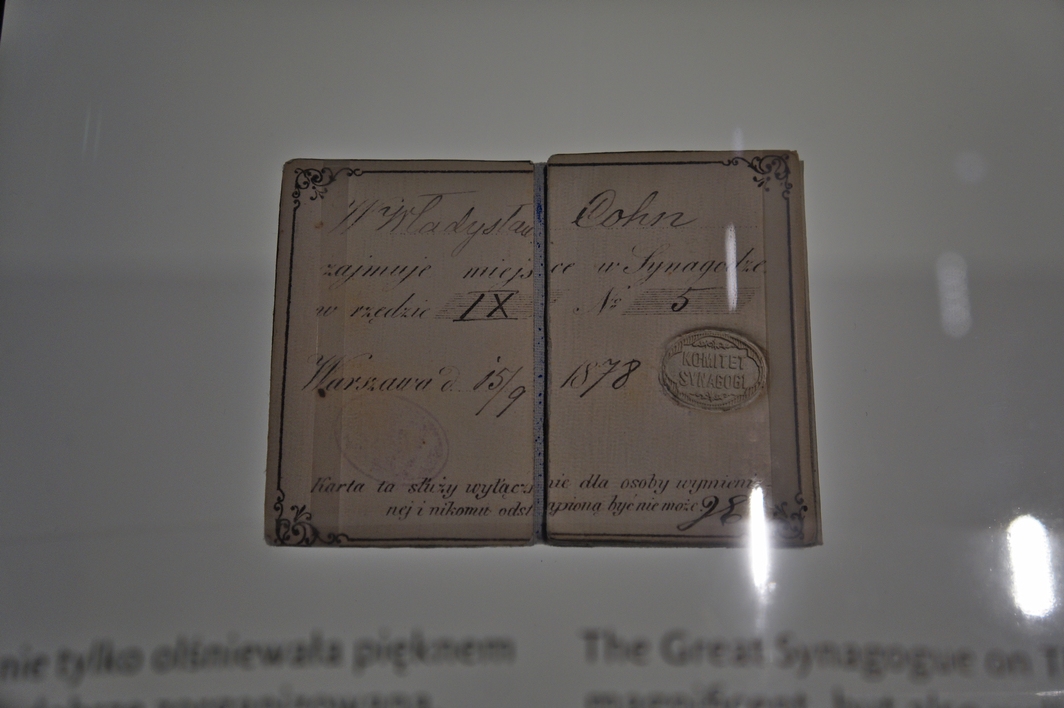 W Władysław Cohn
zajmuje miejsce w Synagodze
w rzędzie IX № 5
Warszawa d. 15/9 1878
KOMITET
SYNAGOGI
Karta ta służy wyłącznie dla osoby wymienio-
nej i nikomu odstąpioną być nie może.
nie tylko olśniewała pięknem
The Great Synagogue on
magnificent, but also